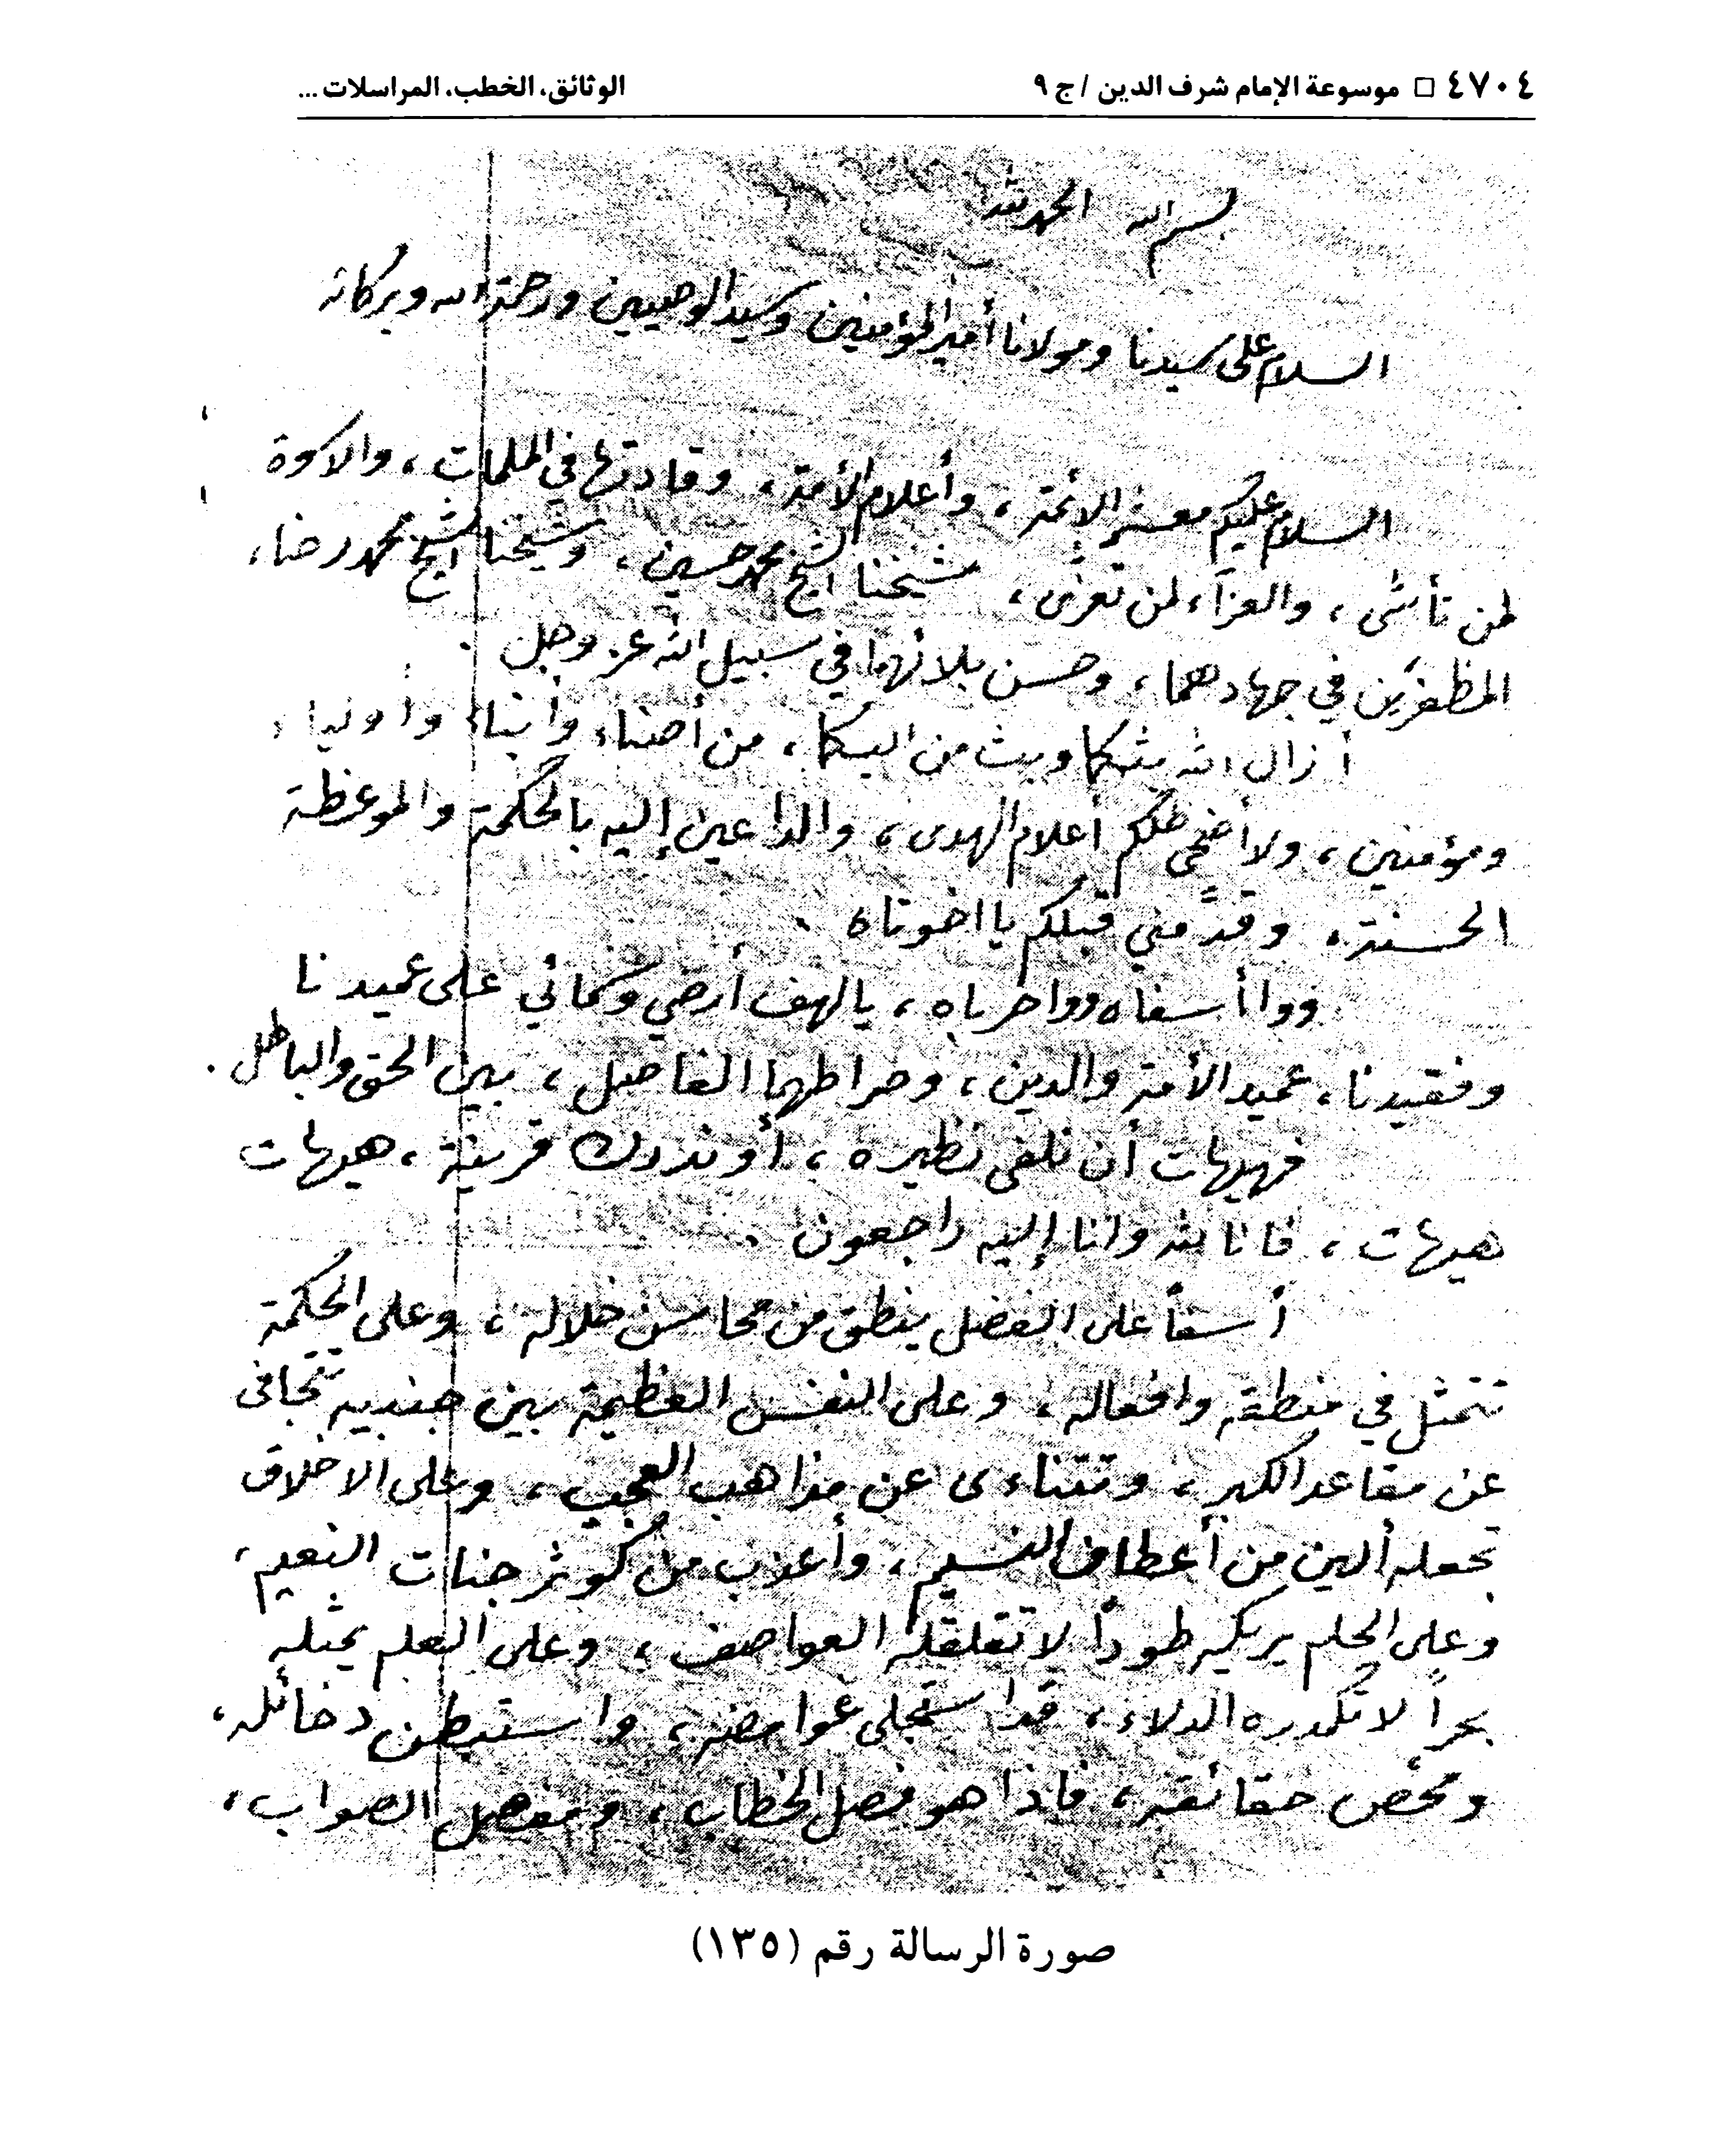 ٤٧٠٤ □ موسوعة الإمام شرف الدين / ج ٩
الوثائق، الخطب، المراسلات ...
بسم الله الحمد لله
السلام على سيدنا ومولانا أمير المؤمنين وسيد الوصيين ورحمة الله وبركاته
السلام عليكم معشر الائمة، وأعلام الأمة، وقادتها في الملمات، والاسوة
لمن تأسّى، والعزاء لمن تعزّى، شيخنا الشيخ محمد حسين، وشيخنا الشيخ محمد رضا،
المظفرَين في جهادهما، وحسن بلائهما في سبيل الله عز وجل .
أزال الله بثكما وبث من اليكما، من أضناء وأبناء وأولياء
ومؤمنين، ولا أضحى ظلكم أعلام الهدى، والداعين إليه بالحكمة والموعظة
الحسنة، وقدَّمني قبلكم يا اخوتاه .
ووا أسفاه وواحرباه، يا لهف أرضي وسمائي على عميدنا
وفقيدنا، عميد الأمة والدين، وصراطهما الفاصل، بين الحق والباطل .
فهيهات أن نلفى نظيره، أو ندرك قرينة، هيهات
هيهات، فانا لله وانا إليه راجعون .
أسفاً على الفضل ينطق من محاسن خلاله، وعلى الحكمة
تتمثل في منطقه وافعاله، وعلى النفس العظيمة بين جنبيه تتجافى
عن مقاعد الكبر، وتتناءى عن مذاهب العجب، وعلى الاخلاق
تجعله ألين من أعطاف النسيم، وأعذب من كوثر جنات النعيم،
وعلى الحلم يريكه طوداً لا تقلقله العواصف، وعلى العلم يمثله
بحراً لا تكدره الدلاء، قد استجلى غوامضه، واستبطن دخائله،
ومحّص حقائقه، فاذا هو فصل الخطاب، ومفصل الصواب،
صورة الرسالة رقم (١٣٥)